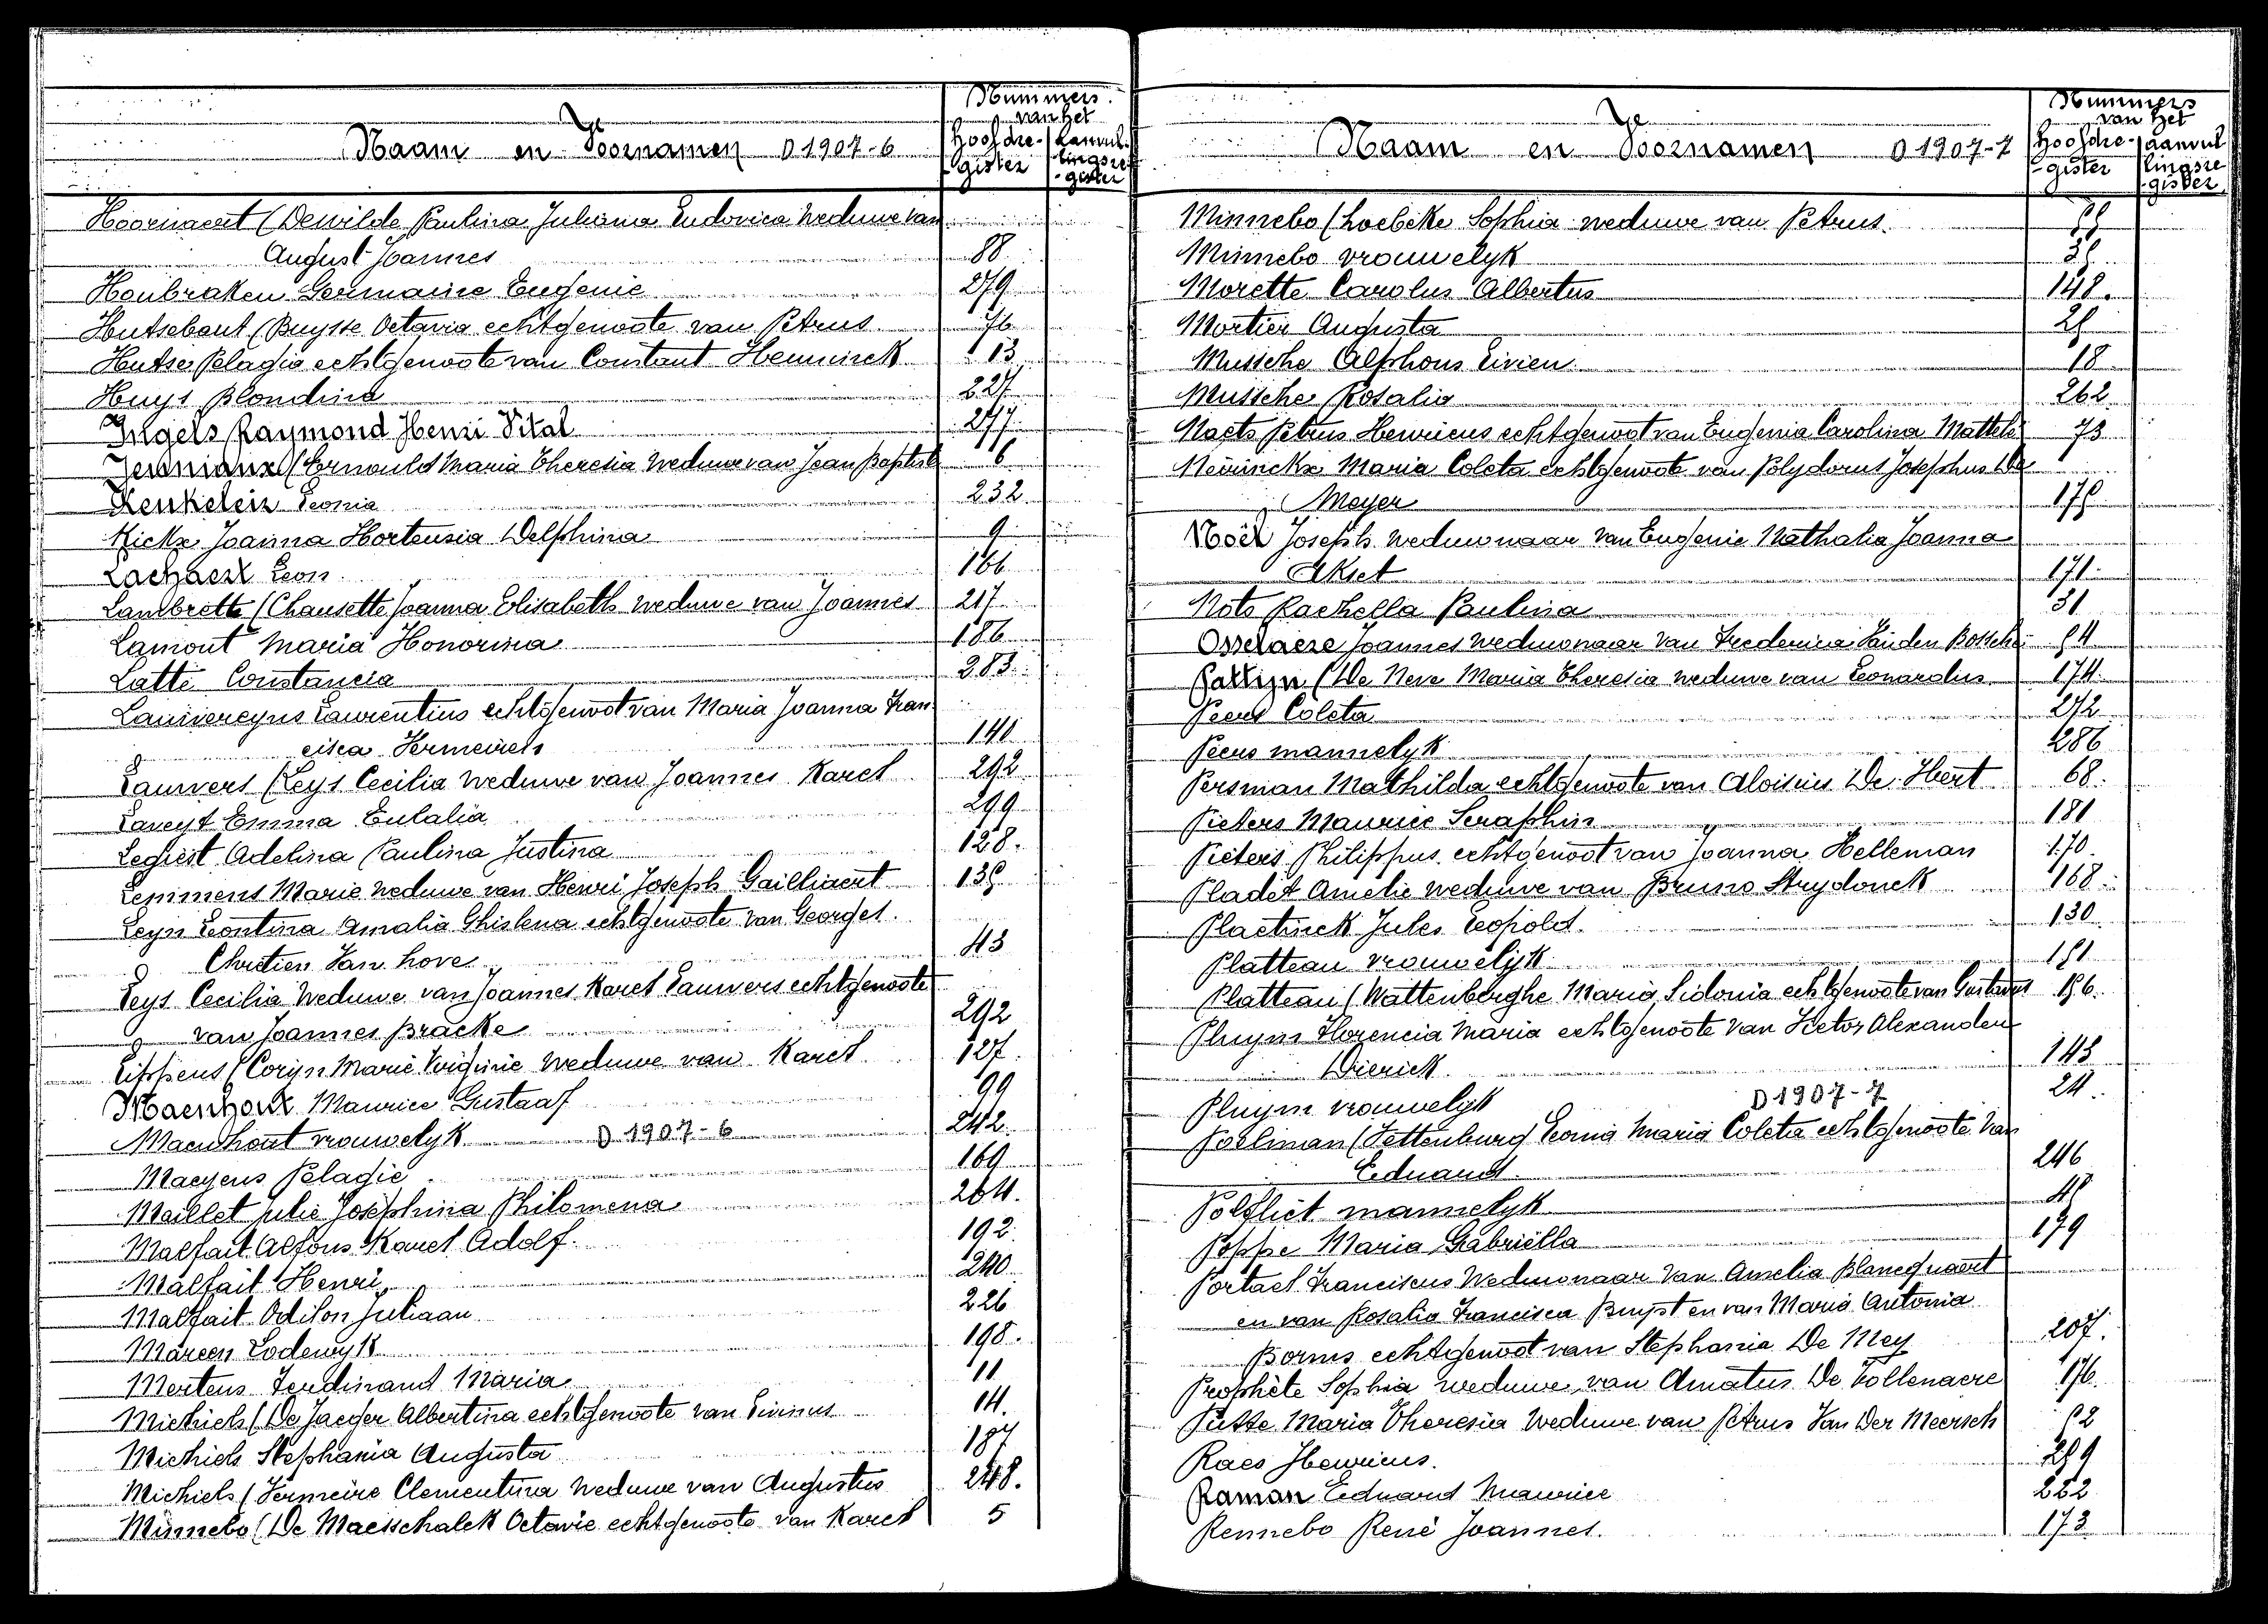 Nummers
van het
Naam en Voornamen D 1907-6
Hoofdre- Aanvul-
gister lingsre-
gister
Hoornaert (Dewilde Paulina Juliana Ludovica weduwe van
August Joannes 88
Houbraken Germaine Eugenie 279
Hutsebaut (Buysse Octavia echtgenoote van Petrus 76
Hutse Pelagie echtgenoote van Constant Hemminck 113
Huys Blondina 227
Ingels Raymond Henri Vital 277
(Ernould Maria Theresia Weduwe van Jean Baptiste 6
Kenkeleir Leonia 232
Kickx Joanna Hortensia Delphina 9
Lachaert Leon 166
Lambrette (Chausette Joanna Elisabeth weduwe van Joannes 217
Lamont Maria Honorina 186
Latte Constancia 283
Lauwereyns Laurentius echtgenoot van Maria Joanna Fran
cisca Vermeirch 140
Lauwers (Leys Cecilia Weduwe van Joannes Karel 292
Laveyt Emma Eulalia 299
Legiest Adelina Paulina Justina 128.
Lemmens Marie weduwe van Henri Joseph Gailliaert 135
Leyn Leontina Amalia Ghislena echtgenoote van Georges
Chretien Van hove 43
Leys Cecilia Weduwe van Joannes Karel Lauwers echtgenoote
van Joannes Bracke 292
Lippens (Coryn Marie Virginie Weduwe van Karel 127
Maenhout Maurice Gustaaf 99
Maenhout vrouwelyk D 1907-6 242
Maeyens Pelagie 169
Maillet Julie Josephina Philomena 264.
Malfait Alfons Karel Adolf. 192
Malfait Henri 240
Malfait Odilon Juliaan 226
Mareen Lodewyk 198.
Mertens Ferdinand Maria 11
Michiels (De Jaeger Albertina echtgenoote van Livinus 14.
Michiels Stephania Augusta 187
Michiels (Vermeire Clementina Weduwe van Augustus 248.
Minnebo (De Maesschalck Octavie echtgenoote van Karel 5
Nummers
van het
Naam en Voornamen D 1907-7
Hoofdre- aanvul
gister lingsre
gister
Minnebo (Loebeke Sophia weduwe van Petrus.
Minnebo vrouwelyk 35
Morette Carolus Albertus 148.
Mortier Augusta 25
Mussche Alphons Livien 18
Mussche Rosalia 262
Naets Petrus Henricus echtgenoot van Eugenia Carolina Mattele 73
Neirinckx Maria Coleta echtgenoote van Polydorus Josephus De
Meyer 175
Noël Joseph weduwnaar van Eugenie Nathalia Joanna
Akset 171
Nots Rachella Paulina 31
Osselaere Joannes weduwnaar van Frederica Vanden Bossche 54
Pattijn (De Neve Maria Theresia weduwe van Leonardus 174
Peers Coleta 272
Peeus mannelyk 286
Persman Mathilda echtgenoote van Aloisius De Hert 68.
Pieters Maurice Seraphin 181
Pieters Philippus echtgenoot van Joanna Helleman 170
Pladet Amelie weduwe van Bruno Strydonck 168
Plaetinck Jules Leopold. 130
Platteau vrouwelijk 151
Platteau (Wattenberghe Maria Sidonia echtgenoote van Gustavus 156.
Pluym Florencia Maria echtgenoote van Victor Alexander
Dierick 143
Pluym vrouwelyk D 1907-7 24
Poelman (Tettenburg Leonia Maria Coleta echtgenoote van
Eduard 246
Polfliet mannelyk 45
Poppe Maria Gabriëlla 179
Portael Franciscus Weduwnaar van Amelia Blancquaert
en van Rosalia Francisca Buyst en van Maria Antonia
Borms echtgenoot van Stephania De Mey 207.
Prophète Sophia weduwe van Amatus De Vollenaere 176
Putte Maria Theresia Weduwe van Petrus Van Der Meersch 52
Raes Henricus. 259
Raman Eduard Maurice 222
Rennebo René Joannes. 173